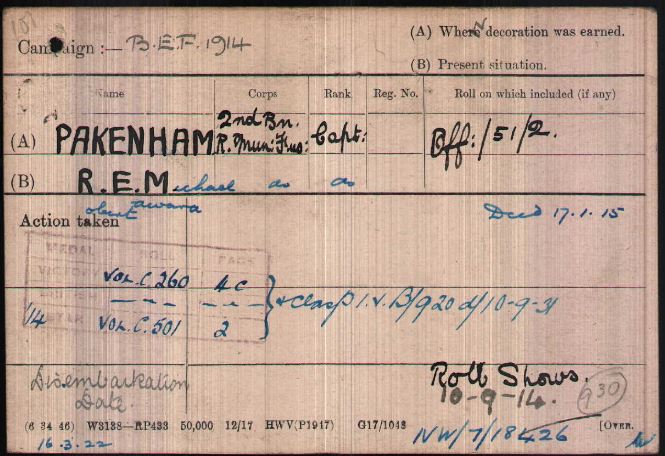 101
Campaign :— B.E.F. 1914
(A) When decoration was earned.
(B) Present situation.
Name Corps Rank Reg. No. Roll on which included (if any)
(A) PAKENHAM 2nd Bn. R. Mun: Fus: Capt: Off:/51/2.
(B) R.E.Michael do do
obert dward
Action taken Died 17.1.15
MEDAL ROLL PAGE
VICTORY VOL.C.260 4c
BRITISH — " — — " — } & Clasp I.V. B/920 d/10-9-31
14 STAR VOL.C.501 2
Disembarkation Date. Roll Shows. 10-9-14. 930
(6 34 46) W3138—RP433 50,000 12/17 HWV(P1917) G17/1048 [OVER.
16.3.22 NW/7/18426